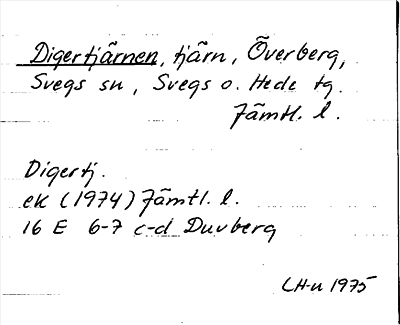 Digertjärnen, tjärn, Överberg,
Svegs sn, Svegs o. Hede tg.
Jämtl. l.
Digertj.
ek (1974) Jämtl. l.
16 E 6-7 c-d Duvberg
LH-n 1975